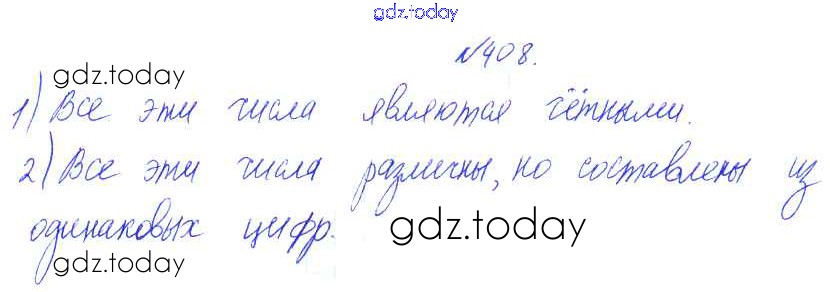 gdz.today
№408.
gdz.today
1) Все эти числа являются чётными.
2) Все эти числа различны, но составлены из
одинаковых цифр.
gdz.today
gdz.today